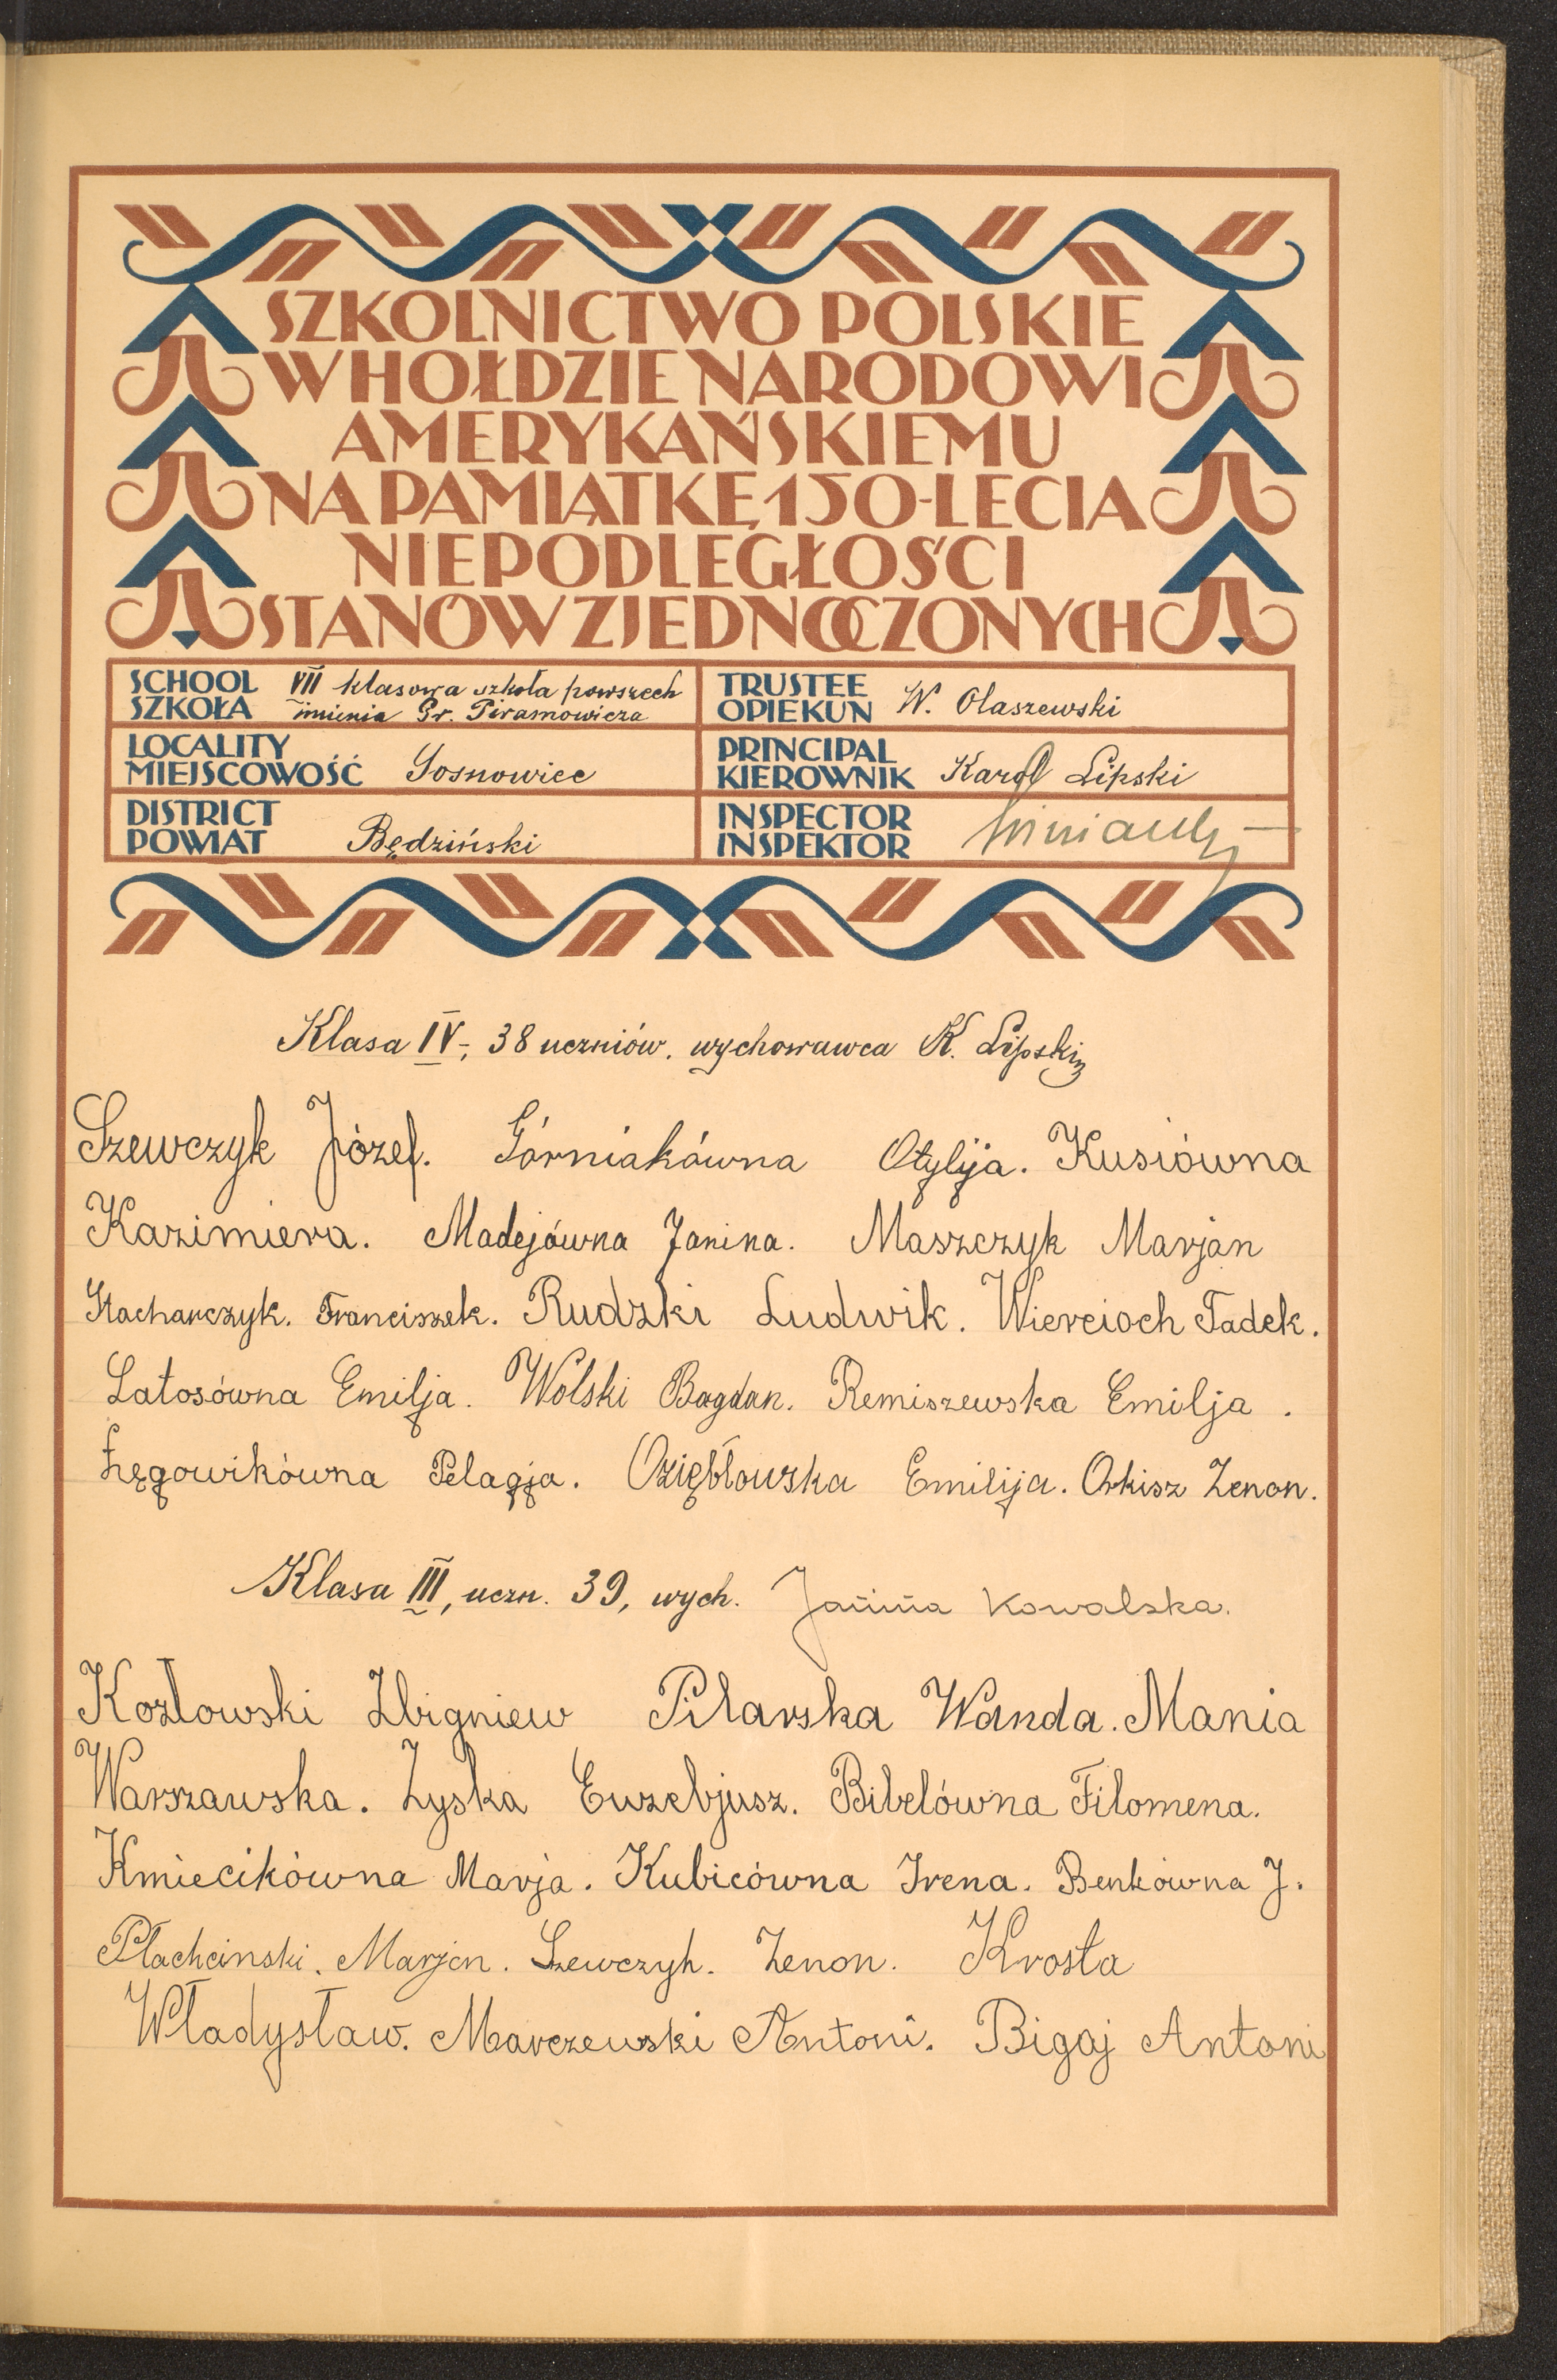 SZKOLNICTWO POLSKIE
W HOŁDZIE NARODOWI
AMERYKAŃSKIEMU
NA PAMIĄTKĘ 150-LECIA
NIEPODLEGŁOŚCI
STANÓW ZJEDNOCZONYCH
SCHOOL
SZKOŁA
VII klasowa szkoła powszech
imienia Gr. Piramowicza
TRUSTEE
OPIEKUN
W. Olaszewski
LOCALITY
MIEJSCOWOŚĆ
Sosnowiec
PRINCIPAL
KIEROWNIK
Karol Lipski
DISTRICT
POWIAT
Będziński
INSPECTOR
INSPEKTOR
Klasa IV-, 38 uczniów, wychowawca K. Lipski
Szewczyk Józef. Górniakówna Otylija. Kusiówna
Kazimiera. Madejówna Janina. Maszczyk Marjan
Stacharczyk. Franciszek. Rudzki Ludwik. Wiercioch Tadek.
Latosówna Emilja. Wolski Bogdan. Remiszewska Emilja.
Łęgowikówna Pelagja. Oziębłowska Emilija. Orkisz Zenon.
Klasa III, uczn. 39, wych. Janina Kowalska.
Kozłowski Zbigniew Pilarska Wanda. Mania
Warszawska. Zyska Euzebjusz. Bibelówna Filomena.
Kmiecikówna Marja. Kubicówna Irena. Benkówna J.
Płachcinski. Marjan. Szewczyk. Zenon. Krosta
Władysław. Marczewski Antoni. Bigaj Antoni